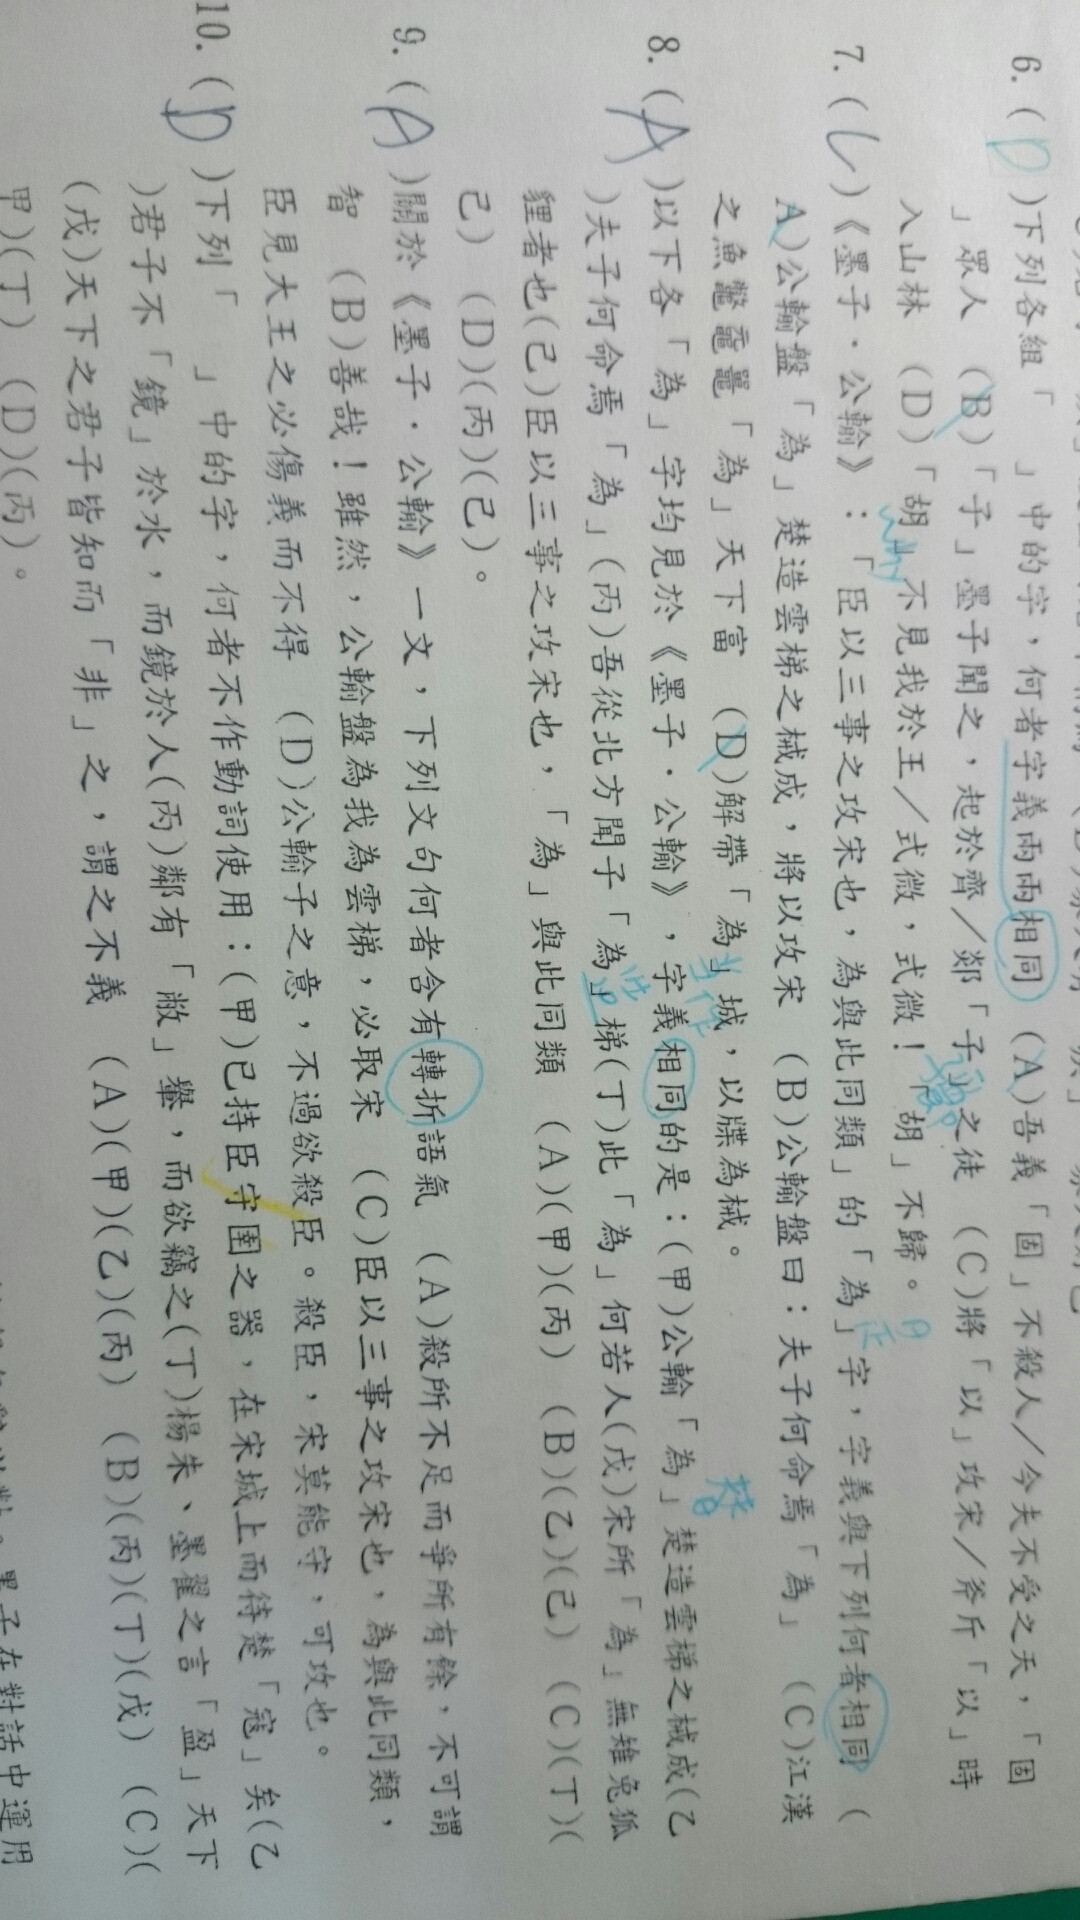 6.( D )下列各組「　」中的字，何者字義兩兩相同 (A)吾義「固」不殺人／今夫不受之天，「固
」眾人 (B)「子」墨子聞之，起於齊／鄰「子」之徒 (C)將「以」攻宋／斧斤「以」時
入山林 (D)「胡」不見我於王／式微，式微！「胡」不歸。
7.( )《墨子．公輸》：「臣以三事之攻宋也，為與此同類」的「為」字，字義與下列何者相同 (
A)公輸盤「為」楚造雲梯之械成，將以攻宋 (B)公輸盤曰：夫子何命焉「為」 (C)江漢
之魚鼈黿鼉「為」天下富 (D)解帶「為」城，以牒為械。
8.( A )以下各「為」字均見於《墨子．公輸》，字義相同的是：(甲)公輸「為」楚造雲梯之械成(乙
)夫子何命焉「為」(丙)吾從北方聞子「為」梯(丁)此「為」何若人(戊)宋所「為」無雉兔狐
貍者也(己)臣以三事之攻宋也，「為」與此同類 (A)(甲)(丙) (B)(乙)(己) (C)(丁)(
己) (D)(丙)(己)。
9.( A )關於《墨子．公輸》一文，下列文句何者含有轉折語氣 (A)殺所不足而爭所有餘，不可謂
智 (B)善哉！雖然，公輸盤為我為雲梯，必取宋 (C)臣以三事之攻宋也，為與此同類，
臣見大王之必傷義而不得 (D)公輸子之意，不過欲殺臣。殺臣，宋莫能守，可攻也。
10.( D )下列「　」中的字，何者不作動詞使用：(甲)已持臣守圉之器，在宋城上而待楚「寇」矣(乙
)君子不「鏡」於水，而鏡於人(丙)鄰有「敝」轝，而欲竊之(丁)楊朱、墨翟之言「盈」天下
(戊)天下之君子皆知而「非」之，謂之不義 (A)(甲)(乙)(丙) (B)(丙)(丁)(戊) (C)(
甲)(丁) (D)(丙)。